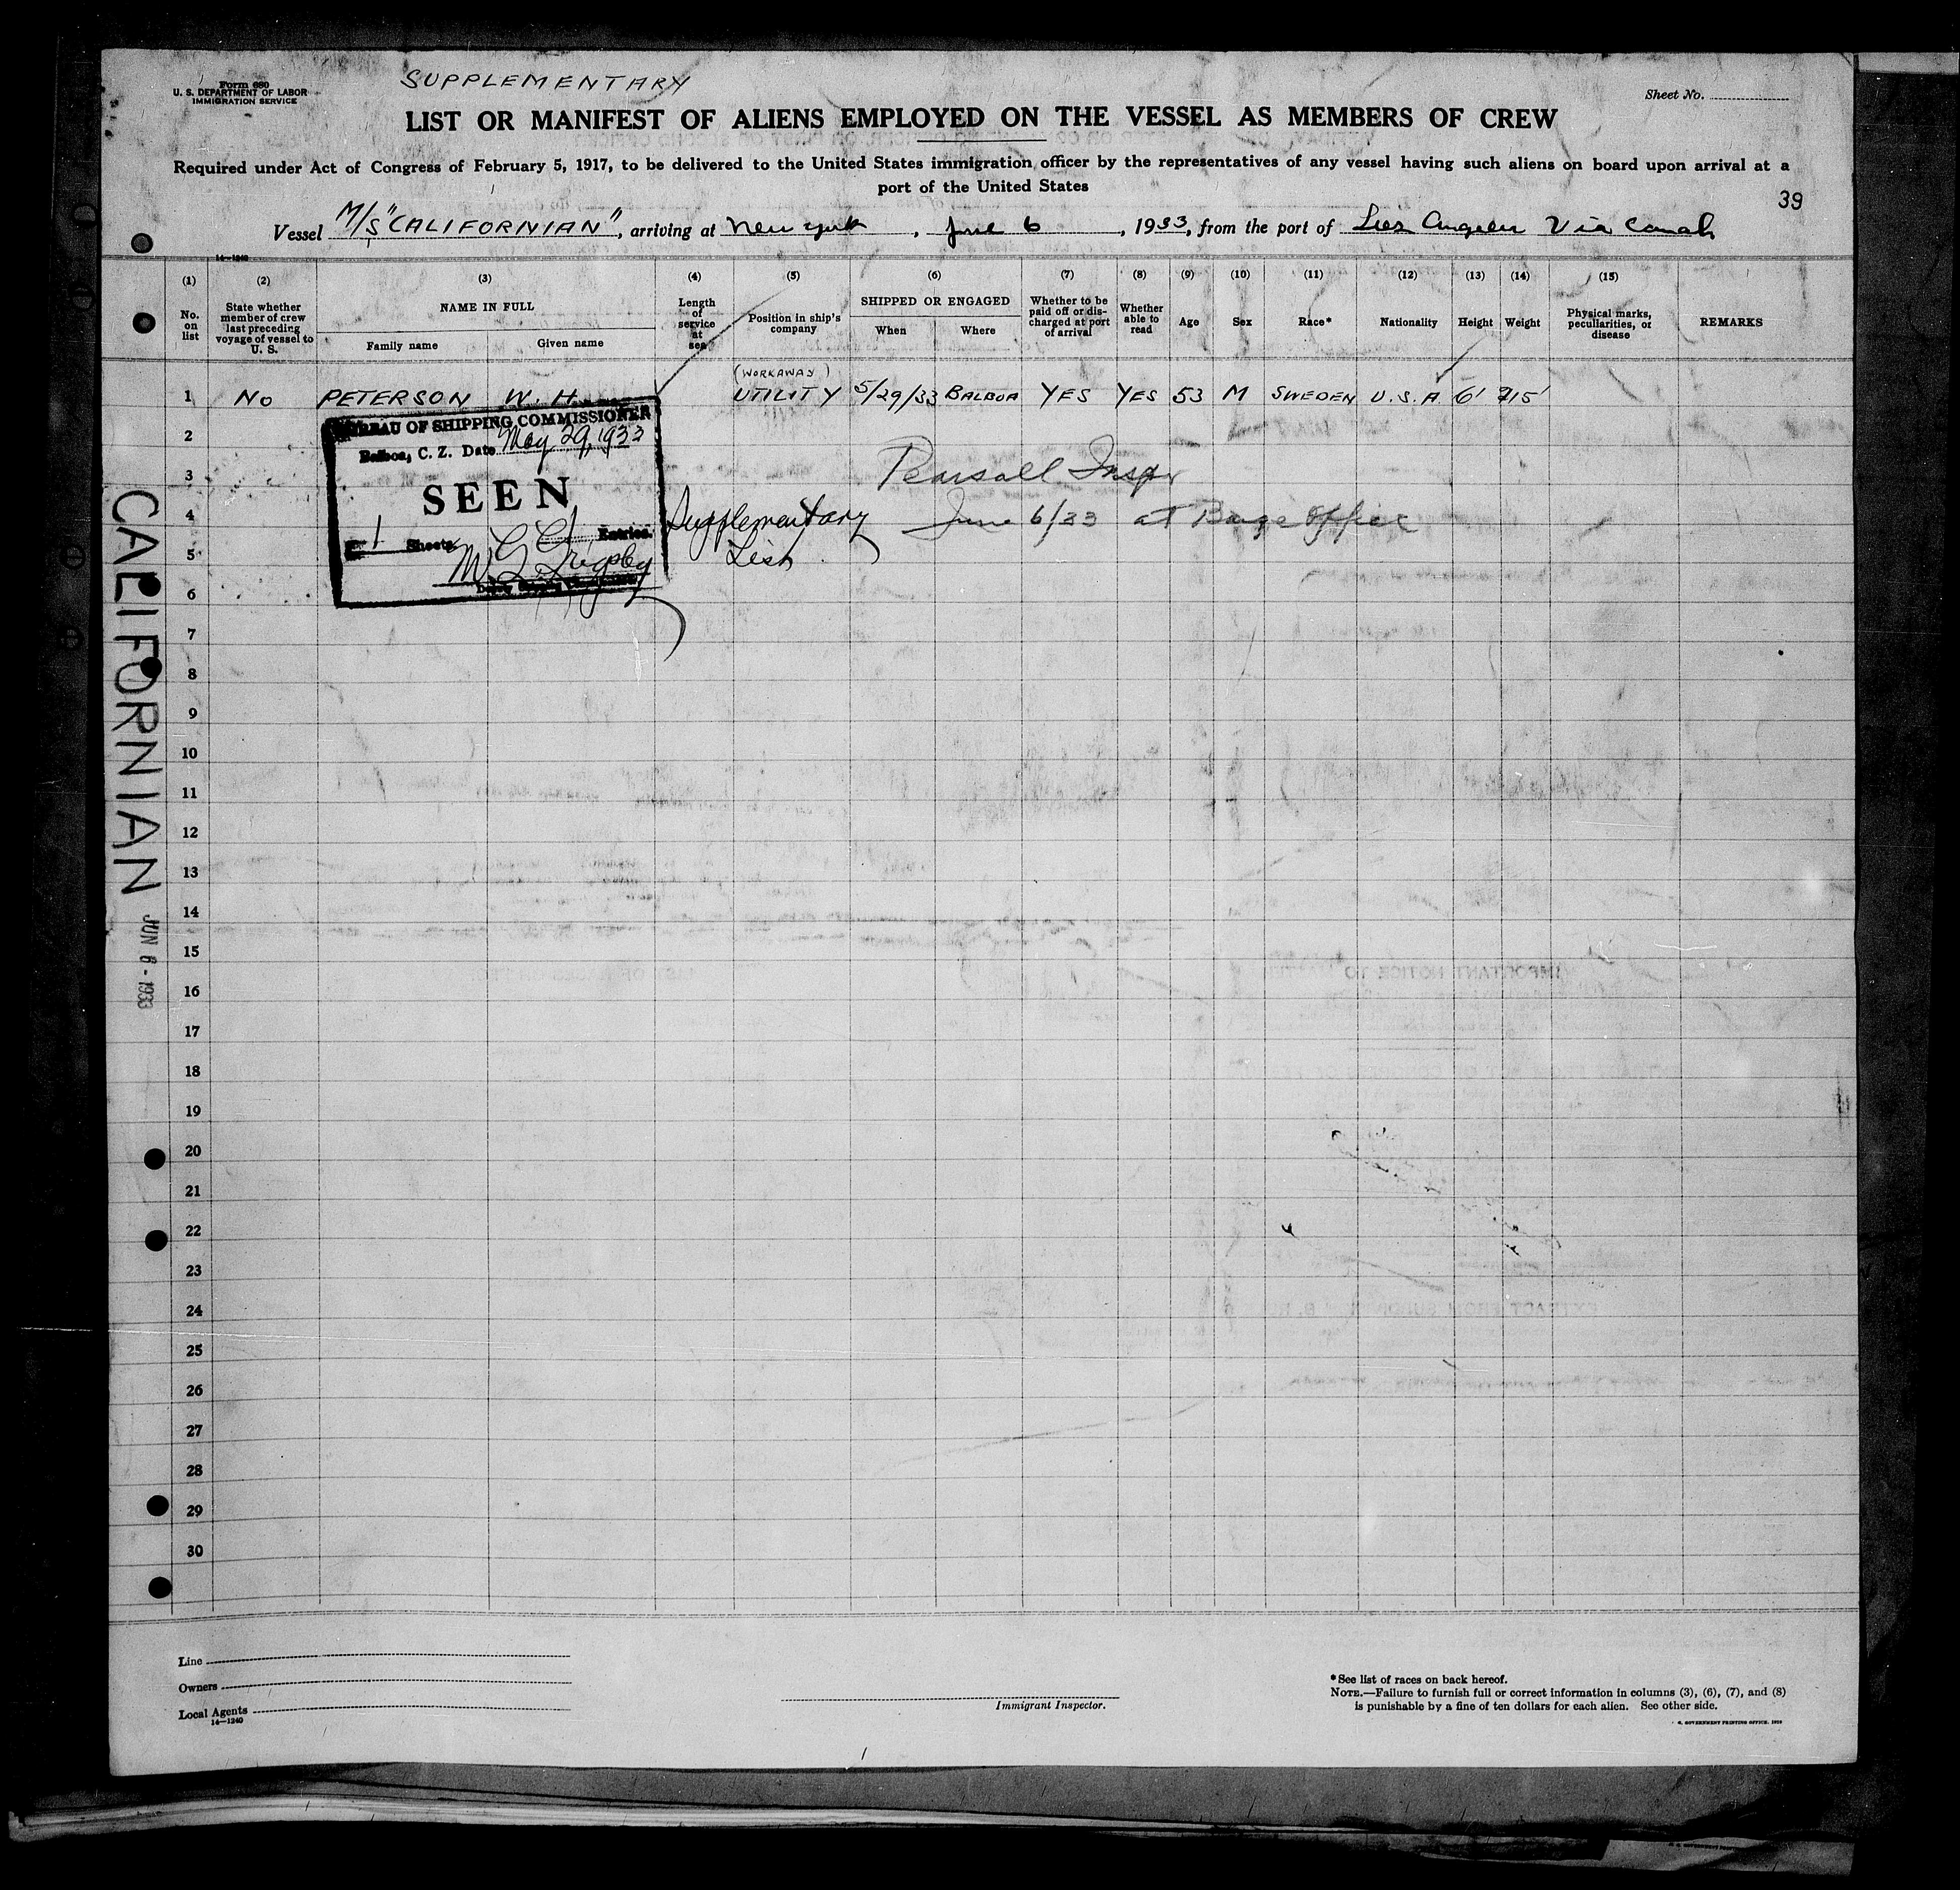 Form 680
U. S. DEPARTMENT OF LABOR
IMMIGRATION SERVICE
SUPPLEMENTARY
Sheet No.
LIST OR MANIFEST OF ALIENS EMPLOYED ON THE VESSEL AS MEMBERS OF CREW
Required under Act of Congress of February 5, 1917, to be delivered to the United States immigration officer by the representatives of any vessel having such aliens on board upon arrival at a
port of the United States
39
Vessel M/S "CALIFORNIAN", arriving at New York, June 6, 1933, from the port of Los Angeles Via Canal
14—1240
(1) (2) (3) (4) (5) (6) (7) (8) (9) (10) (11) (12) (13) (14) (15)
No. on list
State whether member of crew last preceding voyage of vessel to U. S.
NAME IN FULL
Family name Given name
Length of service at sea
Position in ship's company
SHIPPED OR ENGAGED
When Where
Whether to be paid off or discharged at port of arrival
Whether able to read
Age Sex Race* Nationality Height Weight
Physical marks, peculiarities, or disease
REMARKS
(WORKAWAY)
1 No PETERSON W. H. UTILITY 5/29/33 BALBOA YES YES 53 M SWEDEN U.S.A. 6'
BUREAU OF SHIPPING COMMISSIONER
Balboa, C. Z. Date May 29, 1933
SEEN
1 Sheets Entries.
Supplementary
List
Pearsall Inspr
June 6/33 at Barge Office
2
3
4
5
6
7
8
9
10
11
12
13
14
15
16
17
18
19
20
21
22
23
24
25
26
27
28
29
30
CALIFORNIAN
JUN 6 - 1933
Line
Owners
Local Agents
14—1240
Immigrant Inspector.
*See list of races on back hereof.
NOTE.—Failure to furnish full or correct information in columns (3), (6), (7), and (8)
is punishable by a fine of ten dollars for each alien. See other side.
GOVERNMENT PRINTING OFFICE